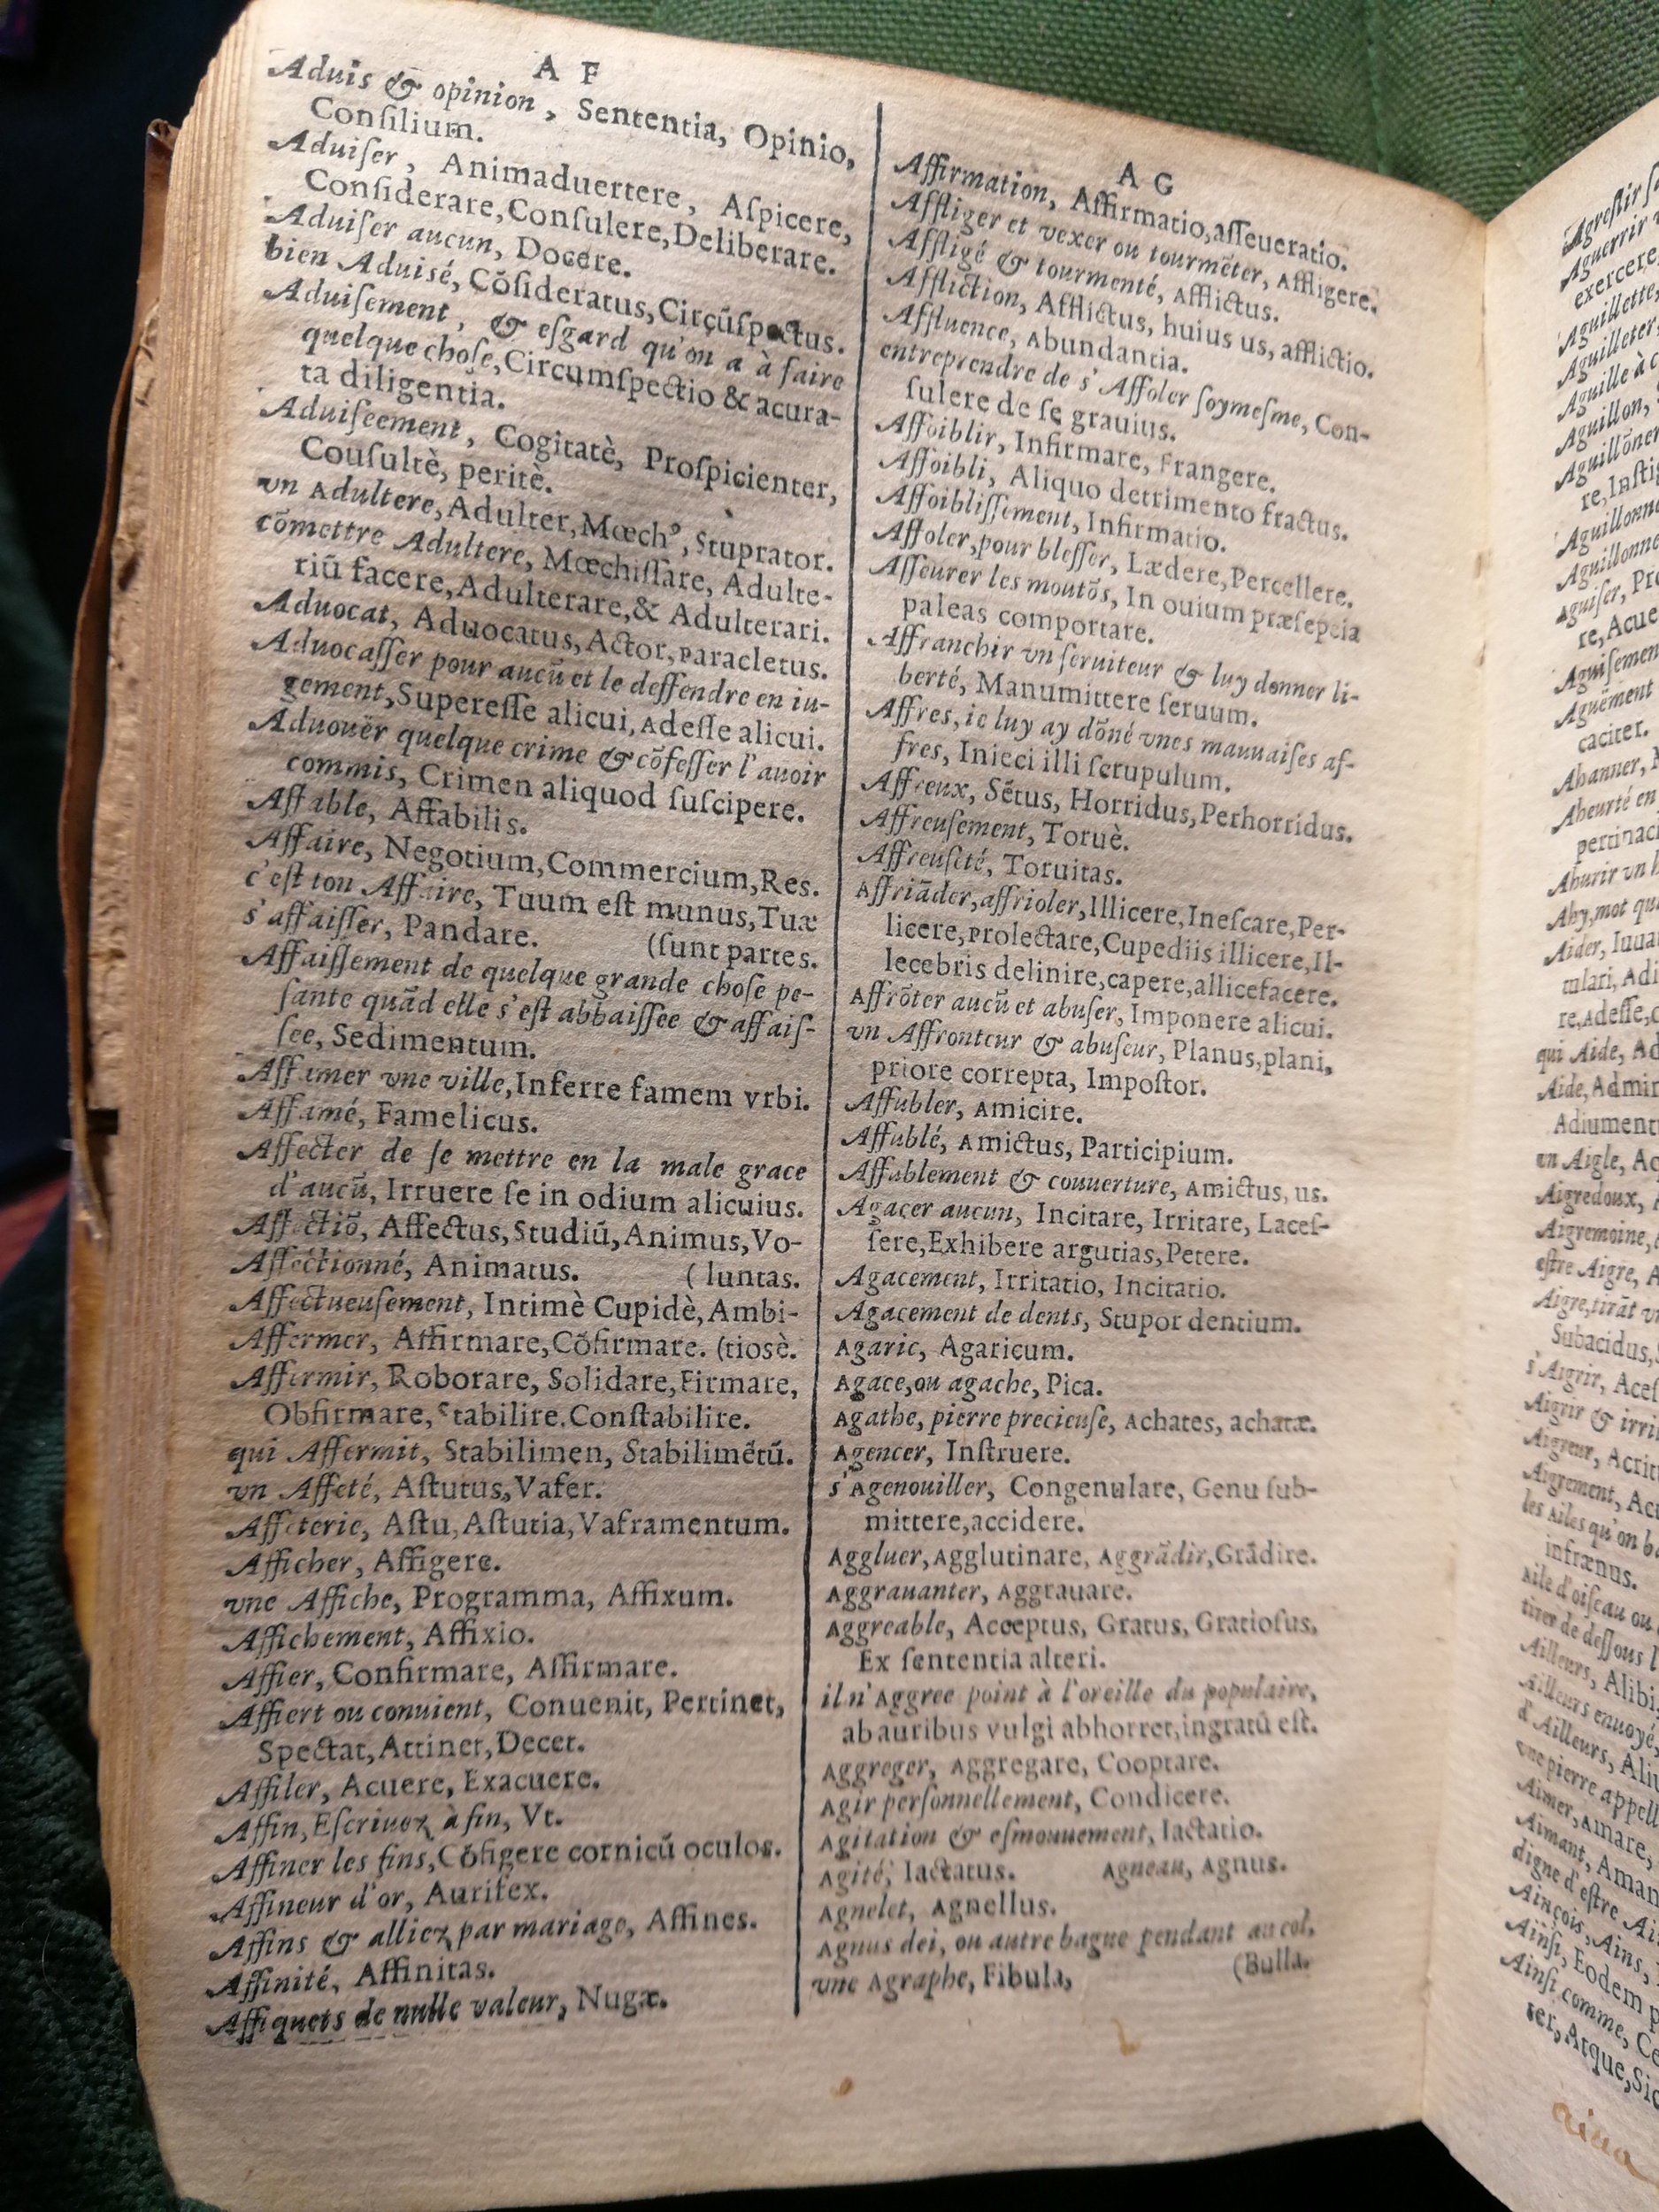 A F
Aduis & opinion, Sententia, Opinio,
Conſilium.
Aduiſer, Animaduertere, Aſpicere,
Conſiderare, Conſulere, Deliberare.
Aduiſer aucun, Docere.
bien Aduisé, Cõſideratus, Circũſpectus.
Aduiſement, & eſgard qu'on a à faire
quelque choſe, Circumſpectio & acura-
ta diligentia.
Aduiſeement, Cogitatè, Proſpicienter,
Couſultè, peritè.
vn Adultere, Adulter, Mœchꝰ, Stuprator.
cõmettre Adultere, Mœchiſſare, Adulte-
riũ facere, Adulterare, & Adulterari.
Aduocat, Aduocatus, Actor, Paracletus.
Aduocaſſer pour aucũ et le deffendre en iu-
gement, Supereſſe alicui, Adeſſe alicui.
Aduouër quelque crime & cõfeſſer l'auoir
commis, Crimen aliquod ſuſcipere.
Affable, Affabilis.
Affaire, Negotium, Commercium, Res.
c'eſt ton Affaire, Tuum eſt munus, Tuæ
s'affaiſſer, Pandare. (ſunt partes.
Affaiſſement de quelque grande choſe pe-
ſante quãd elle s'eſt abbaiſſee & affaiſ-
ſee, Sedimentum.
Affamer vne ville, Inferre famem vrbi.
Affamé, Famelicus.
Affecter de ſe mettre en la male grace
d'aucũ, Irruere ſe in odium alicuius.
Affectiõ, Affectus, Studiũ, Animus, Vo-
Affectionné, Animatus. (luntas.
Affectueuſement, Intimè Cupidè, Ambi-
Affermer, Affirmare, Cõfirmare. (tiosè.
Affermir, Roborare, Solidare, Firmare,
Obfirmare, Stabilire. Conſtabilire.
qui Affermit, Stabilimen, Stabilimẽtũ.
vn Affeté, Aſtutus, Vafer.
Affeterie, Aſtu, Aſtutia, Vaframentum.
Afficher, Affigere.
vne Affiche, Programma, Affixum.
Affichement, Affixio.
Affier, Confirmare, Affirmare.
Affiert ou conuient, Conuenit, Pertinet,
Spectat, Attinet, Decet.
Affiler, Acuere, Exacuere.
Affin, Eſcriuez à fin, Vt.
Affiner les fins, Cõfigere cornicũ oculos.
Affineur d'or, Aurifex.
Affins & alliez par mariage, Affines.
Affinité, Affinitas.
Affiquets de nulle valeur, Nugæ.
A G
Affirmation, Affirmatio, aſſeueratio.
Affliger et vexer ou tourmẽter, Affligere.
Affligé & tourmenté, Afflictus.
Affliction, Afflictus, huius us, afflictio.
Affluence, Abundantia.
entreprendre de s'Affoler ſoymeſme, Con-
ſulere de ſe grauius.
Affoiblir, Infirmare, Frangere.
Affoibli, Aliquo detrimento fractus.
Affoibliſſement, Infirmatio.
Affoler, pour bleſſer, Lædere, Percellere.
Aſſeurer les moutõs, In ouium præſepeia
paleas comportare.
Affranchir vn ſeruiteur & luy donner li-
berté, Manumittere ſeruum.
Affres, ie luy ay dõné vnes mauuaiſes af-
fres, Inieci illi ſcrupulum.
Affreux, Sẽtus, Horridus, Perhorridus.
Affreuſement, Toruè.
Affreuſeté, Toruitas.
Affriãder, affrioler, Illicere, Ineſcare, Per-
licere, Prolectare, Cupediis illicere, Il-
lecebris delinire, capere, allicefacere.
Affrõter aucũ et abuſer, Imponere alicui.
vn Affronteur & abuſeur, Planus, plani,
priore correpta, Impoſtor.
Affubler, Amicire.
Affublé, Amictus, Participium.
Affublement & couuerture, Amictus, us.
Agacer aucun, Incitare, Irritare, Laceſ-
ſere, Exhibere argutias, Petere.
Agacement, Irritatio, Incitatio.
Agacement de dents, Stupor dentium.
Agaric, Agaricum.
Agace, ou agache, Pica.
Agathe, pierre precieuſe, Achates, achatæ.
Agencer, Inſtruere.
s'Agenouiller, Congenulare, Genu ſub-
mittere, accidere.
Aggluer, Agglutinare, Aggrãdir, Grãdire.
Aggrauanter, Aggrauare.
Aggreable, Acceptus, Gratus, Gratioſus,
Ex ſententia alteri.
il n'Aggree point à l'oreille du populaire,
ab auribus vulgi abhorret, ingratũ eſt.
Aggreger, Aggregare, Cooptare.
Agir perſonnellement, Condicere.
Agitation & eſmouuement, Iactatio.
Agité, Iactatus. Agneau, Agnus.
Agnelet, Agnellus.
Agnus dei, ou autre bague pendant au col,
vne Agraphe, Fibula, (Bulla.
Agreſtir
Aguerrir
exercere
Aguillette,
Aguilleter,
Aguille à
Aguillon,
Aguillõner
re, Inſti
Aguillonn
Aguillonne
Aguiſer, Pro
re, Acue
Aguiſemen
Aguëment
caciter.
Ahanner,
Aheurté en
pertinac
Ahurir vn
Ahy, mot qu
Aider, Iuua
tulari, Adi
re, Adeſſe,
qui Aide, Ad
Aide, Admin
Adiument
vn Aigle,
Aigredoux,
Aigremoine,
eſtre Aigre,
Aigre, tirãt
Subacidus,
s'Aigrir, Aceſ
Aigrir & irri
Aigreur, Acrit
Aigrement, Acr
les Ailes qu'on
infrænus.
Aile d'oiſeau ou
tirer de deſſous
Ailleurs, Alibi
Ailleurs enuoyé,
d'Ailleurs, Aliu
vne pierre appell
Aimer, Amare,
Aimant, Aman
digne d'eſtre Ai
Ainçois, Ains,
Ainſi, Eodem
Ainſi comme, Ce
ter, Atque, Sic